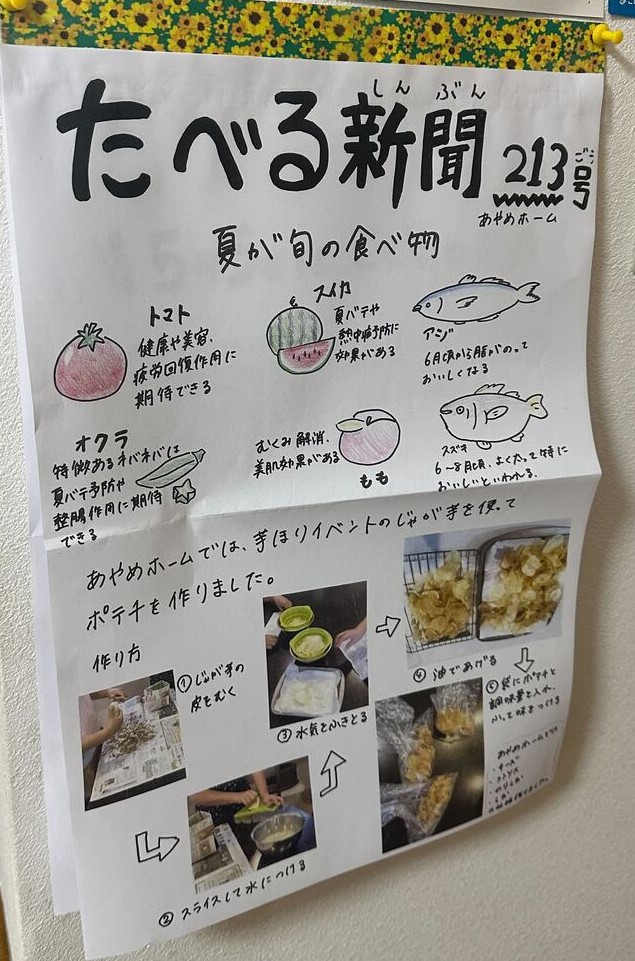 しん ぶん
たべる新聞 213号
ごう
あやめホーム
夏が旬の食べ物
トマト
健康や美容、
疲労回復作用に
期待できる
スイカ
夏バテや
熱中症予防に
効果がある
アジ
6月頃から脂がのって
おいしくなる
オクラ
特徴あるネバネバは
夏バテ予防や
整腸作用に期待
できる
むくみ解消、
美肌効果がある
もも
スズキ
6〜8月頃、よく太って特に
おいしいといわれる。
あやめホームでは、芋ほりイベントのじゃが芋を使って
ポテチを作りました。
作り方
①じゃが芋の
皮をむく
②スライスして水につける
③水気をふきとる
④油であげる
⑤袋にポテチと
調味量を入れ、
ふって味をつける
あやめホームでは